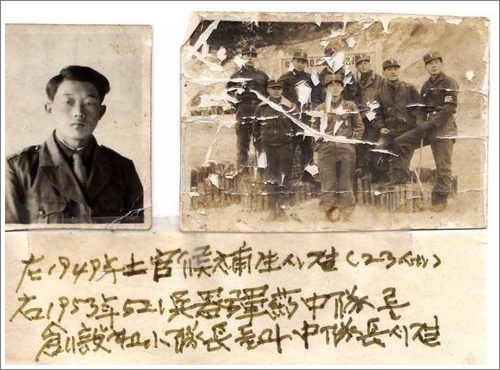 左1949年士官候補生시절(23세)
右1953年521兵器彈藥中隊를
創設하고小隊長들과中隊長시절